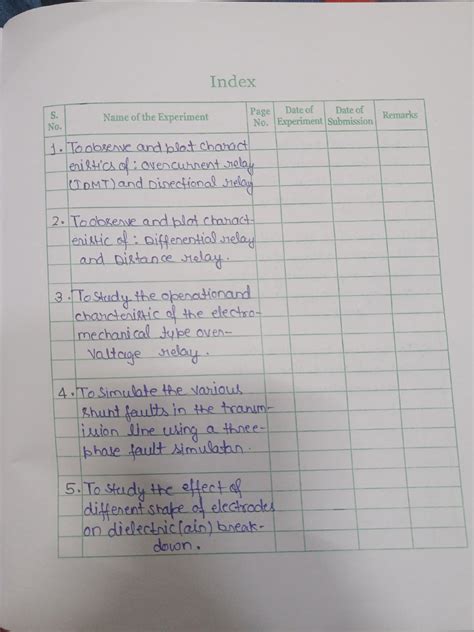 Index
S. No. Name of the Experiment Page No. Date of Experiment Date of Submission Remarks
1. To observe and plot charact
eristics of : overcurrent relay
(IDMT) and Directional relay
2. To observe and plot charact-
eristic of : Differential relay
and Distance relay.
3. To study the operation and
charcteristic of the electro-
mechanical type over-
Valtage relay.
4. To simulate the various
shunt faults in the transm-
ission line using a three-
phase fault simulator.
5. To study the effect of
different shape of electrodes
on dielectric (air) break-
down.